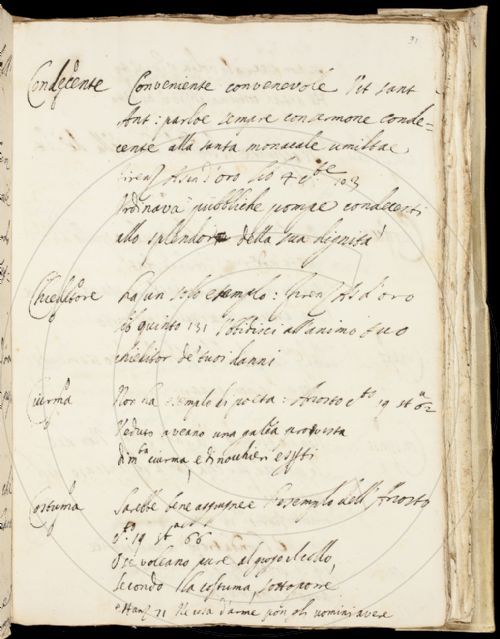 31
Condecente Conveniente convenevole Vit sant
Ant: parloe sempre con sermone conde=
cente alla santa monacale umiltae
Firenz Asin d'oro lib 4 c 103
Ordinava pubbliche pompe condecenti
allo splendor della sua dignità
Chieditore ha un solo esempio: Firenz As d'oro
lib quinto 131 all'animo suo
chieditor de tuoi danni
Ciurma Non ha esempio di poeta: Ariosto c.to 19 st.a 62
Veduto aveano una galea provvista
di ciurma, e di nocchieri
Costuma Sarebbe bene aggiugnere l'esempio dell'Ariosto
c.to 19 st.a 66
O se voleano pure al giogo il collo,
secondo la costuma, sottoporre
Stanz 71 uomini avea